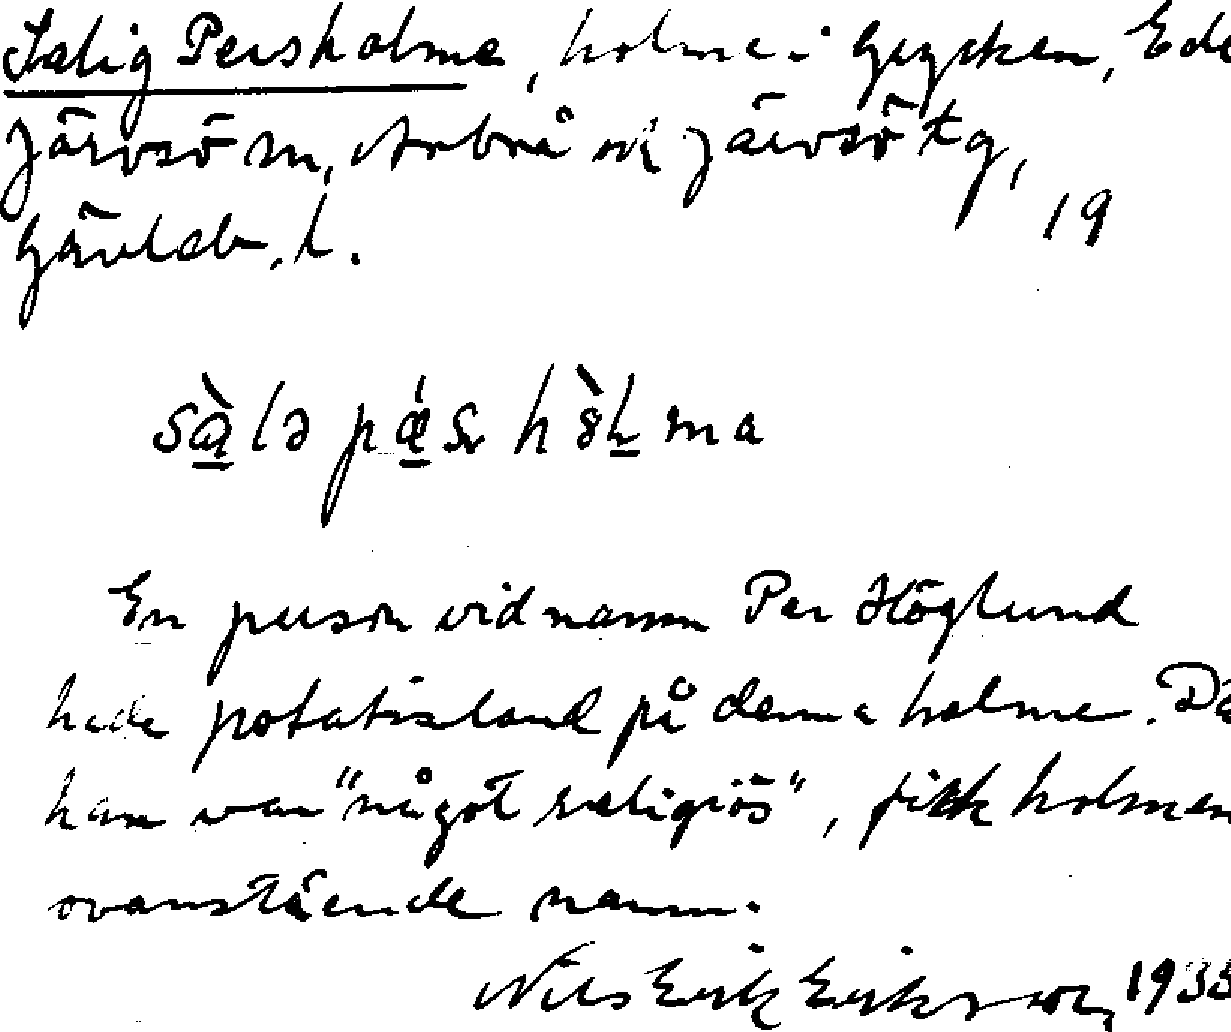 Salig Persholme, holme i Grycken, Ede
Järvsö sn, Arbrå och Järvsö tg,
Gävleb. l.
19
sà̱lə pǽ̱s hò̱lma
En person vid namn Per Höglund
hade potatisland på denna holme. Då
han var "något religiös", fick holmen
ovanstående namn.
Nils Erik Eriksson, 1935